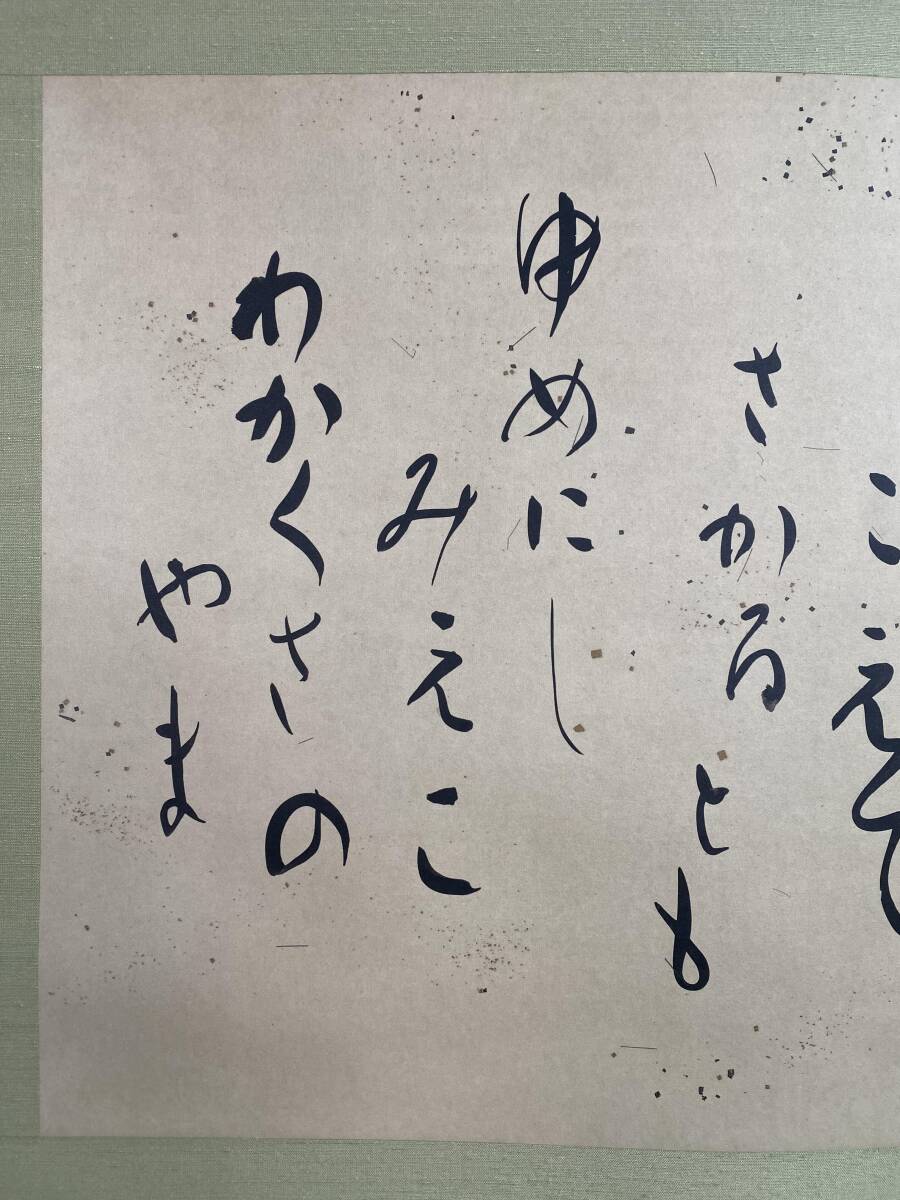 こえて
さかるとも
ゆめにし
みえこ
わかくさの
やま